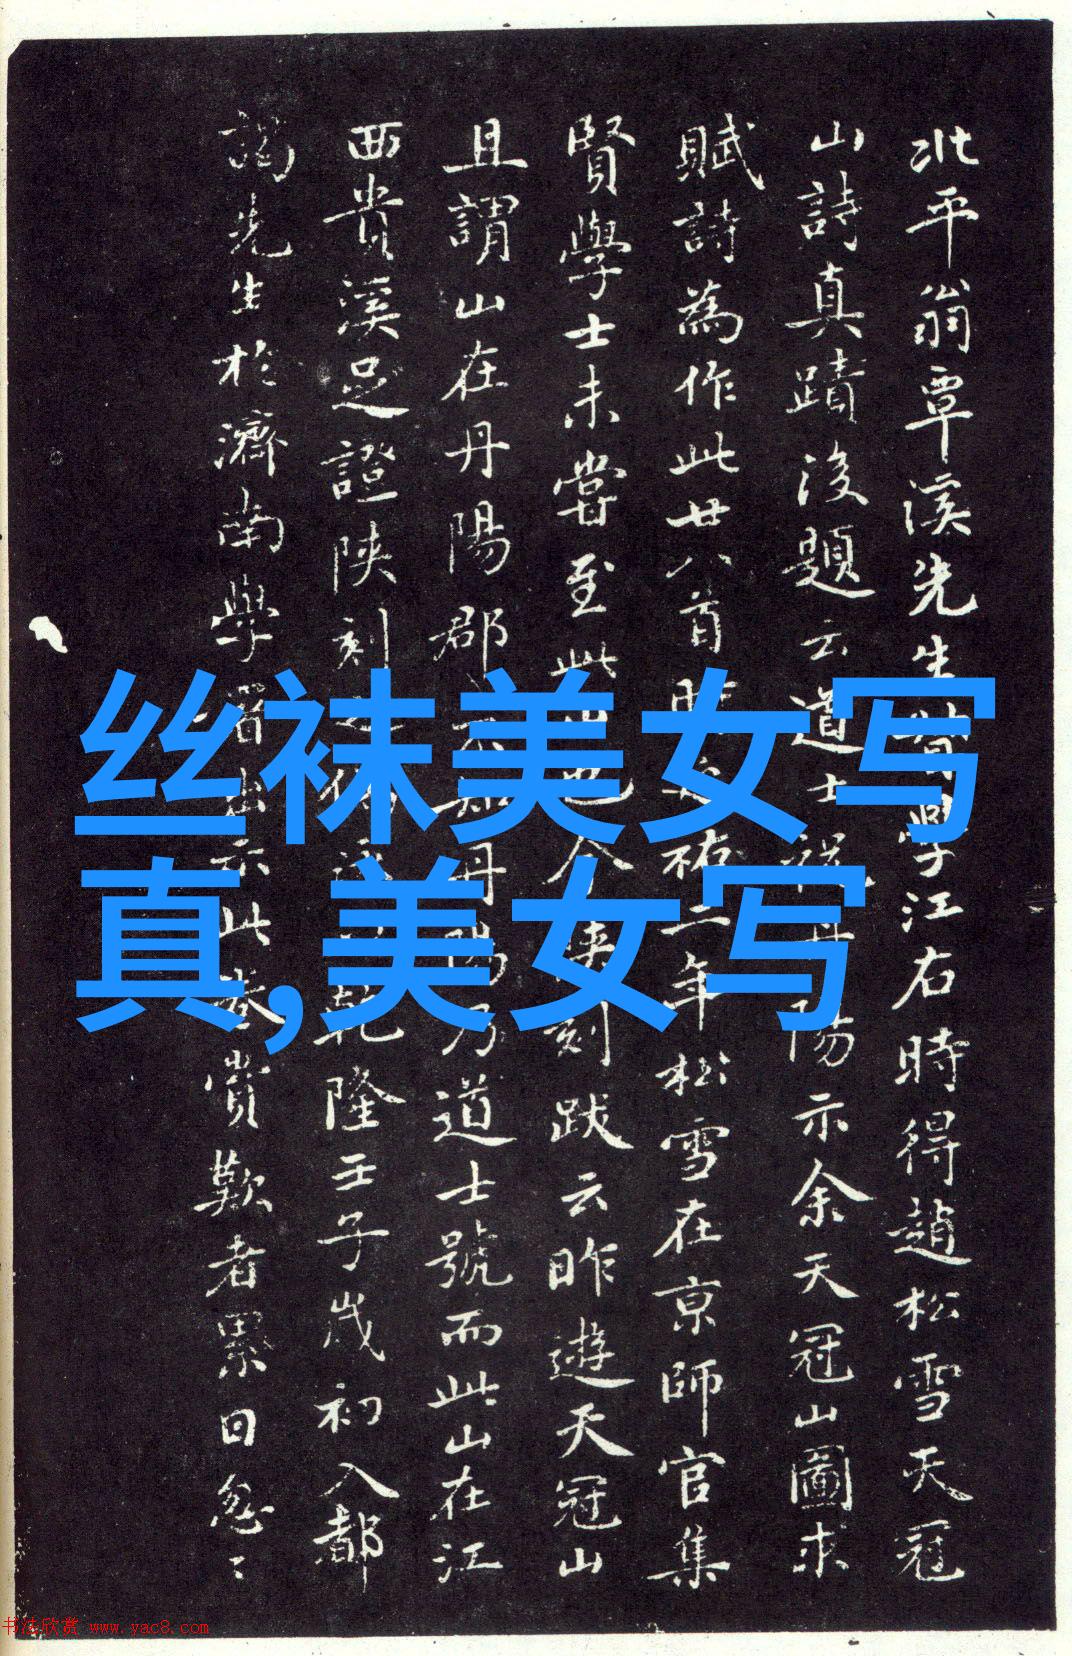 北平翁覃溪先生督學江右時得趙松雪天冠
山詩真蹟後題云道士祝丹陽示余天冠山圖求
賦詩為作此廿八首 祐二年松雪在京師官集
賢學士未嘗至此山也今陝刻跋云昨遊天冠山
且謂山在丹陽郡 丹陽乃道士號而此山在江
西貴溪足證陝刻 乾隆壬子歲初入都
謁先生於濟南學 出示此卷賞歎者累日忽〻
丝袜美女写
真,美女写
书法欣赏 www.yac8.com